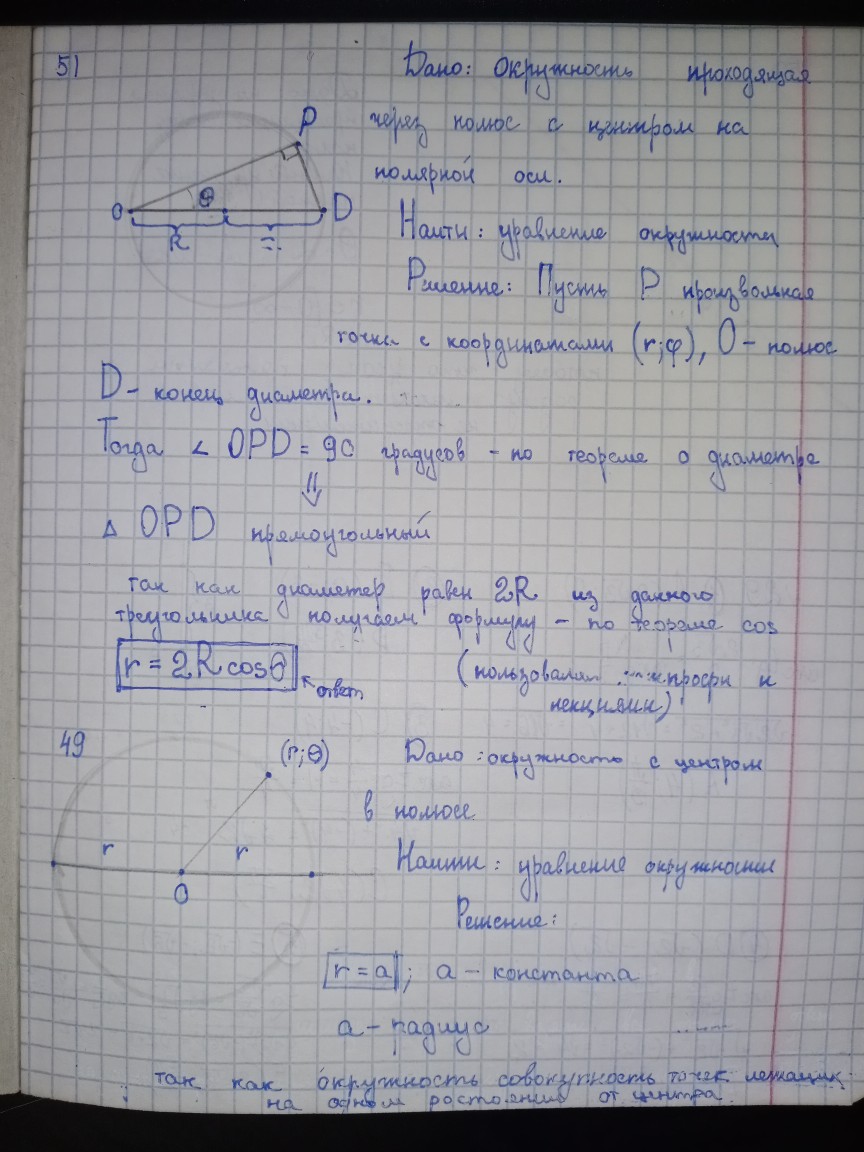 51
Дано: Окружность проходящая
через полюс с центром на
полярной оси.
P
O
θ
D
R
=
Найти: уравнение окружности
Решение: Пусть P произвольная
точка с координатами (r;φ), O - полюс
D - конец диаметра.
Тогда ∠ OPD = 90 градусов - по теореме о диаметре
⇓
△ OPD прямоугольный
так как диаметр равен 2R из данного
треугольника получаем формулу - по теореме cos
r = 2R cosθ
ответ
(
лекциями)
49
(r;θ)
Дано: окружность с центром
в полюсе.
r
r
O
Найти: уравнение окружности
Решение:
r = a ; a - константа
a - радиус
так как окружность совокупность точек лежащих
на одном ростоянии от центра.